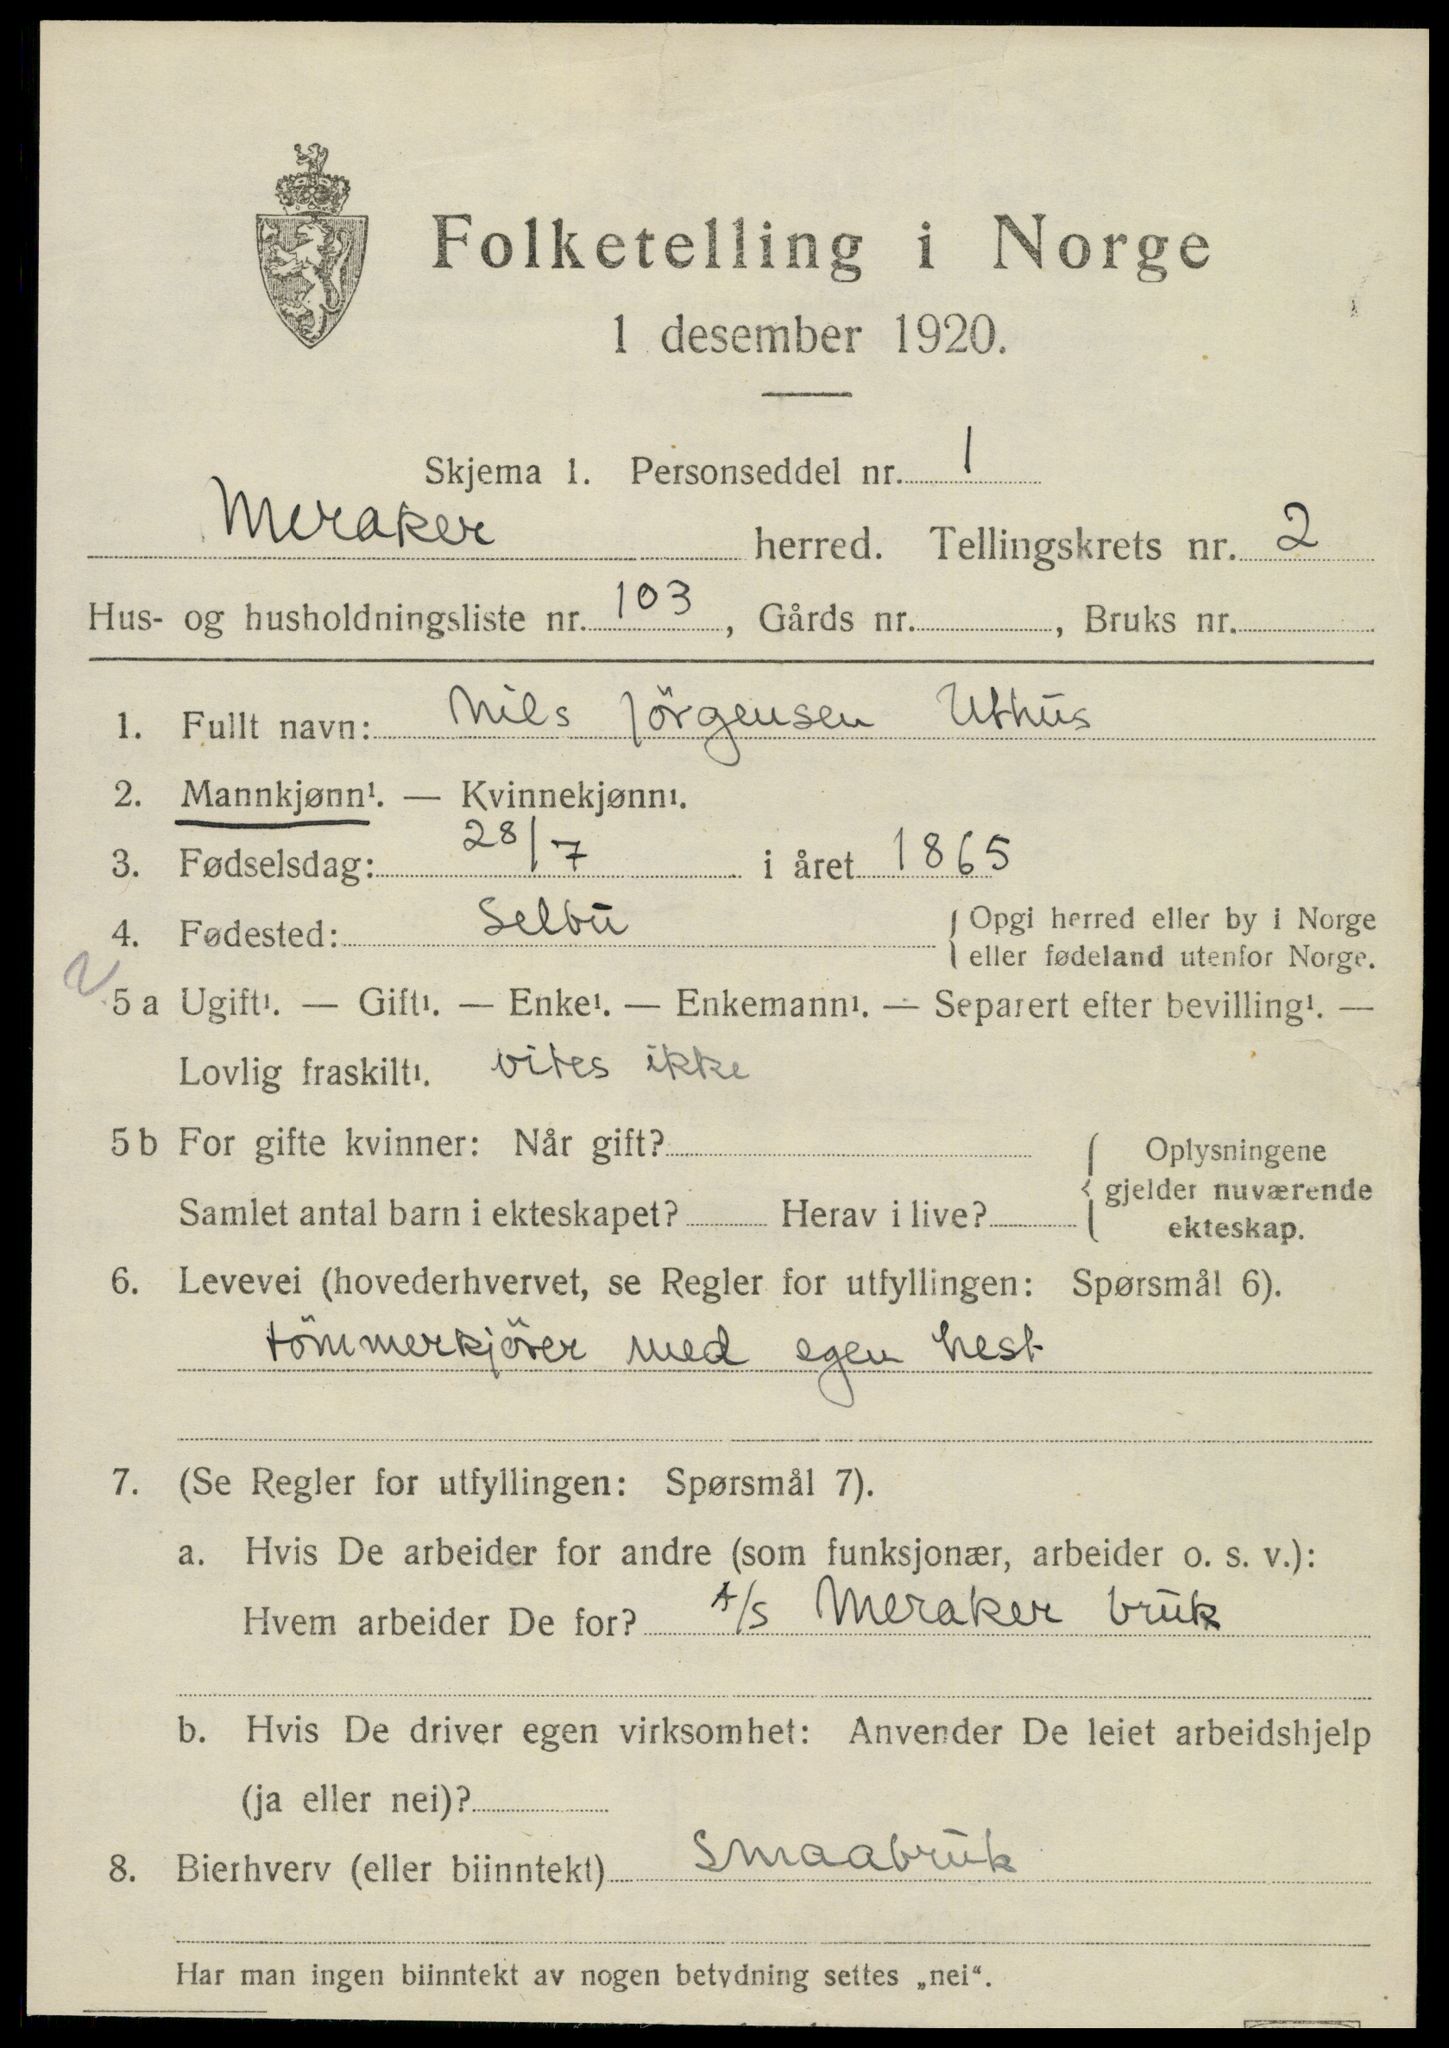 Folketelling i Norge
1 desember 1920.
Skjema 1. Personseddel nr. 1
Meraker herred. Tellingskrets nr. 2
Hus- og husholdningsliste nr. 103, Gårds nr. , Bruks nr.
1. Fullt navn: Nils Jörgensen Uthus
2. Mannkjønn¹. — Kvinnekjønn¹.
3. Fødselsdag: 28/7 i året 1865
4. Fødested: Selbu { Opgi herred eller by i Norge
eller fødeland utenfor Norge.
5 a Ugift¹. — Gift¹. — Enke¹. — Enkemann¹. — Separert efter bevilling¹. —
Lovlig fraskilt¹. vites ikke
5 b For gifte kvinner: Når gift?
Samlet antal barn i ekteskapet? Herav i live?
{ Oplysningene
gjelder nuværende
ekteskap.
6. Levevei (hovederhvervet, se Regler for utfyllingen: Spørsmål 6).
tömmerkjörer med egen hest
7. (Se Regler for utfyllingen: Spørsmål 7).
a. Hvis De arbeider for andre (som funksjonær, arbeider o. s. v.):
Hvem arbeider De for? A/S Meraker bruk
b. Hvis De driver egen virksomhet: Anvender De leiet arbeidshjelp
(ja eller nei)?
8. Bierhverv (eller biinntekt) Smaabruk
Har man ingen biinntekt av nogen betydning settes „nei“.